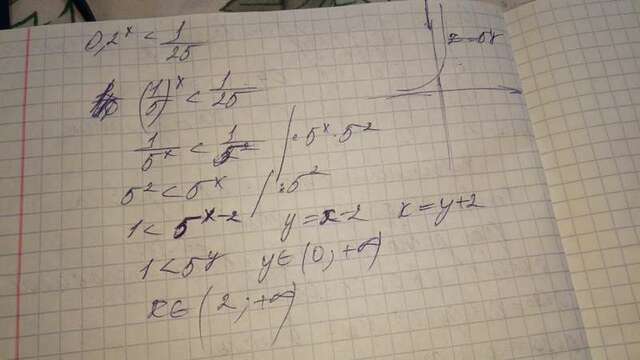 0,2^x < 1/25
(1/5)^x < 1/25
1/5^x < 1/5^2 | · 5^x · 5^2
5^2 < 5^x | : 5^2
1 < 5^(x-2) y = x-2 x = y+2
1 < 5^y y ∈ (0; +∞)
x ∈ (2; +∞)
z = 5^y